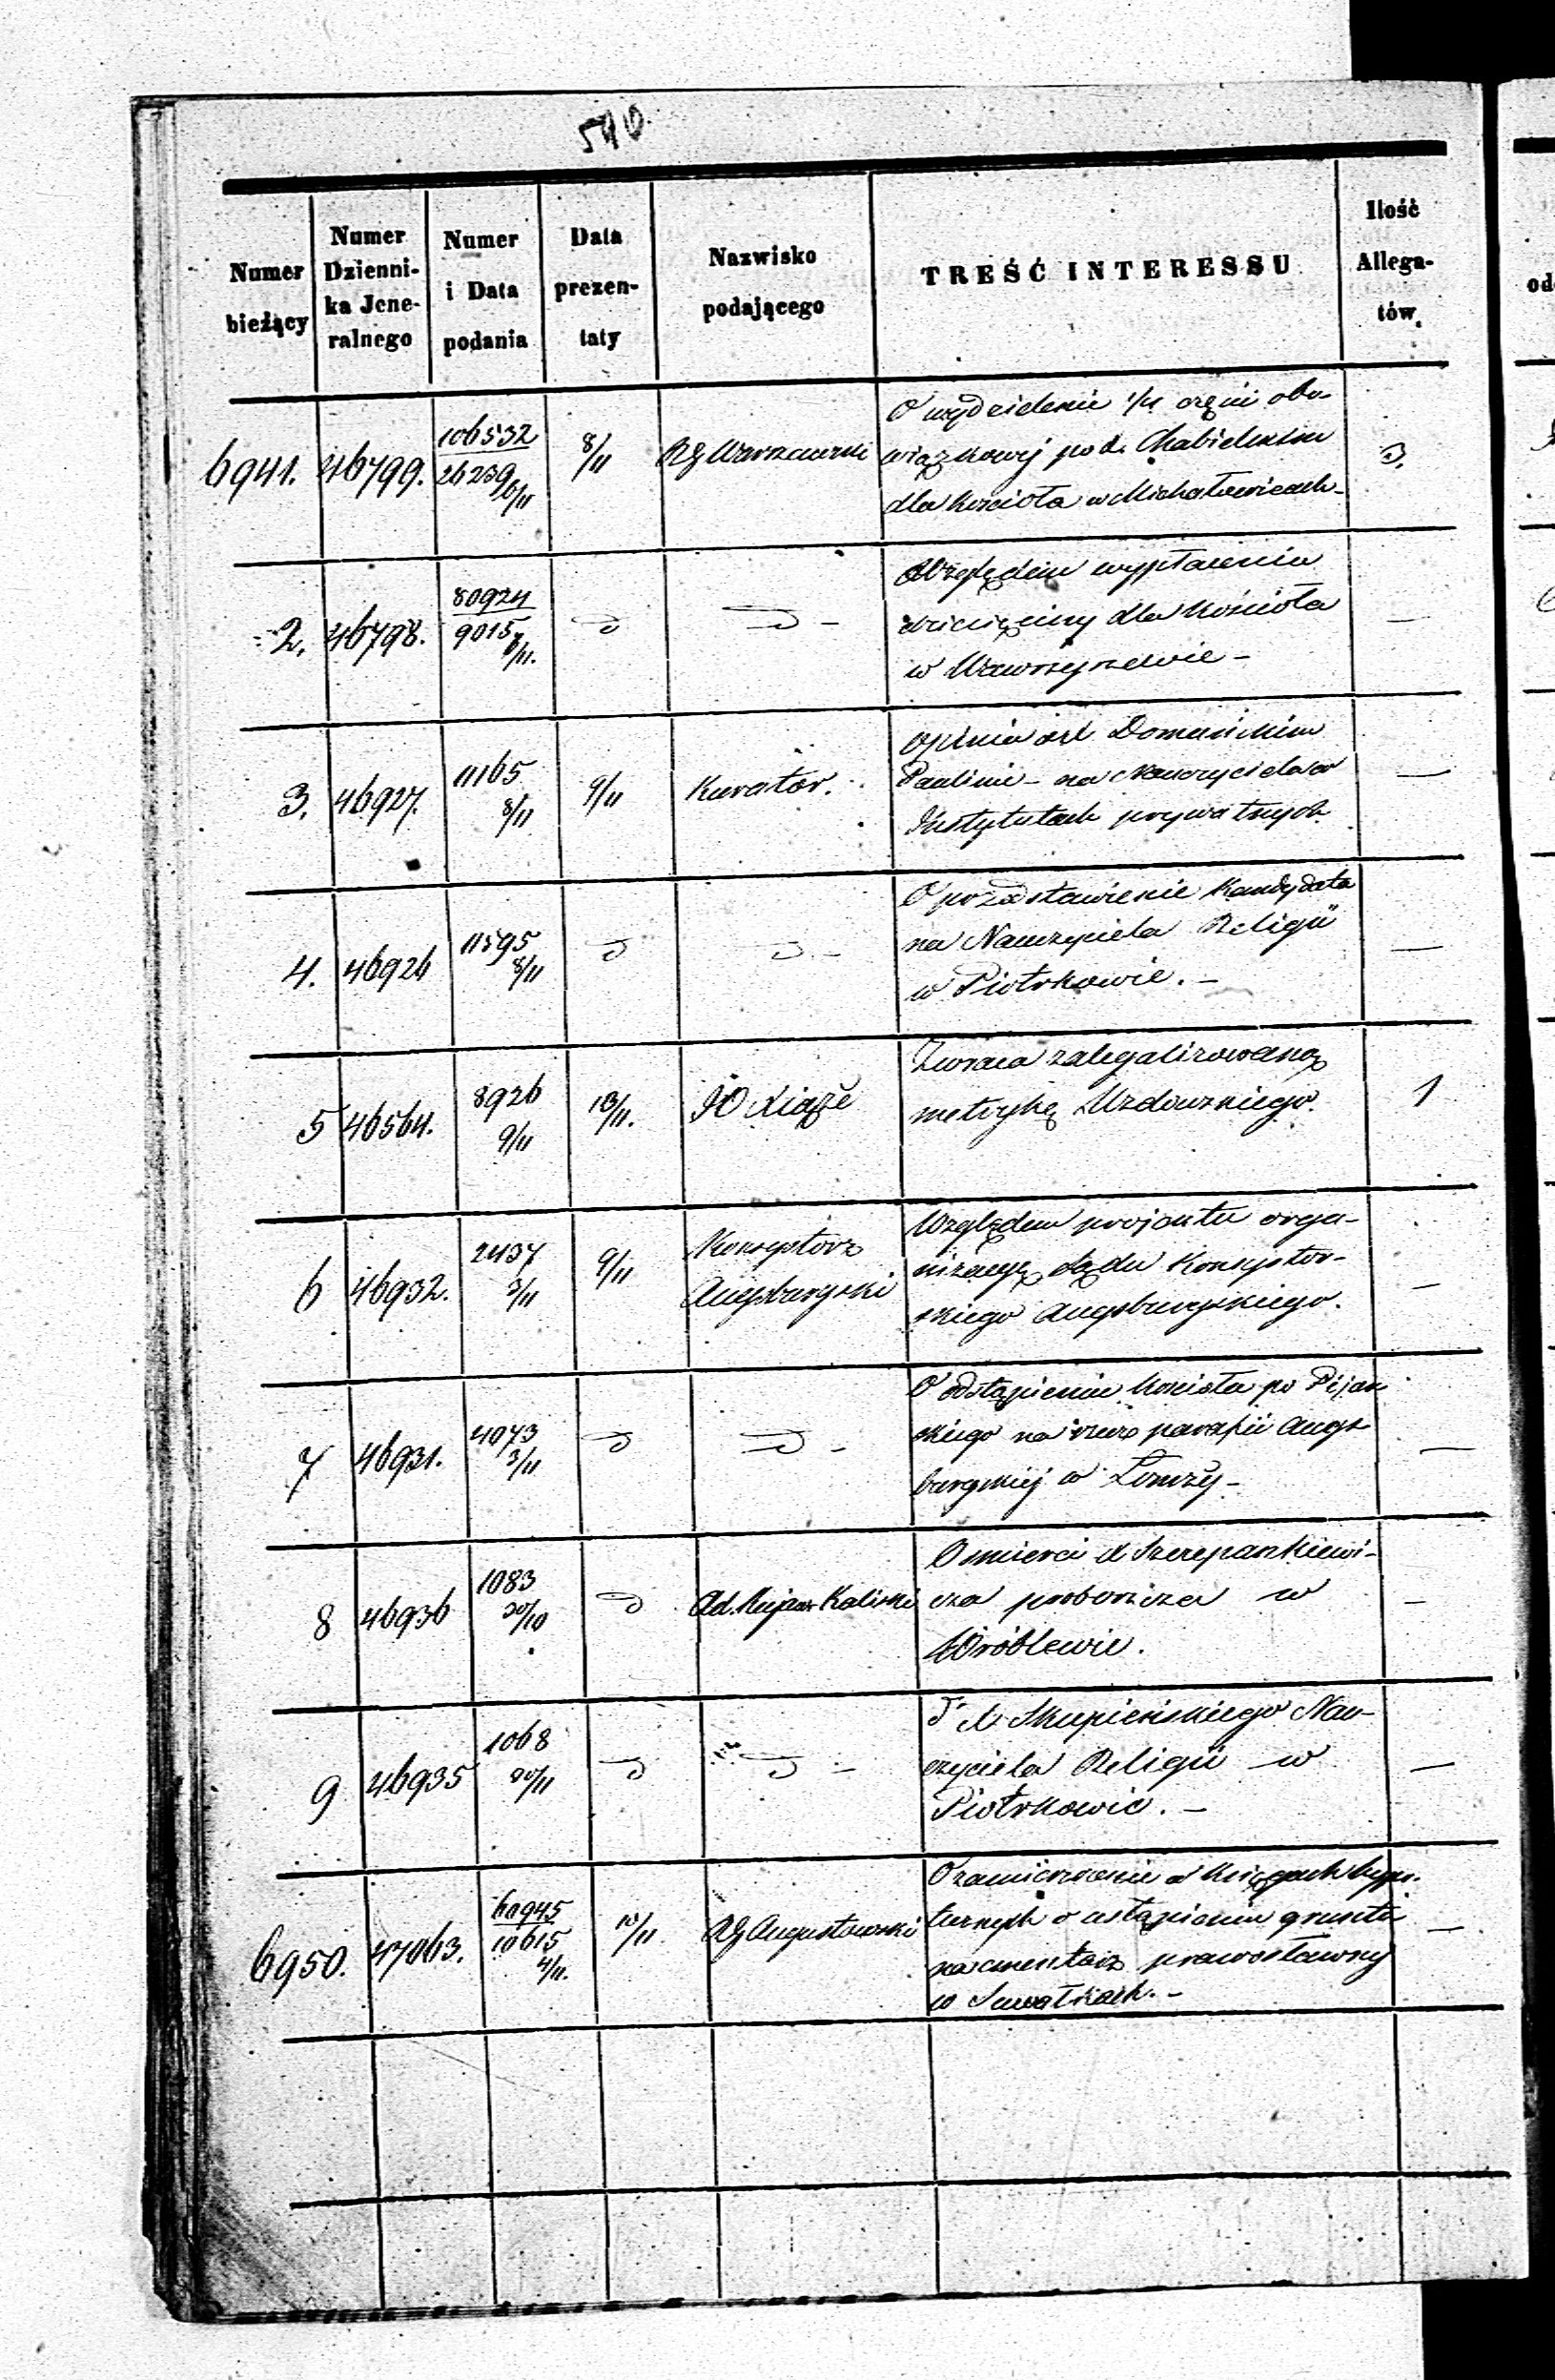 540.
Numer bieżący | Numer Dzienni- ka Jene- ralnego | Numer i Data podania | Data prezen- taty | Nazwisko podającego | TREŚĆ INTERESSU | Ilość Allega- tów.
6941. | 46799. | 106532 / 26239 6/11 | 8/11 | RG Warszawski | O wydzielenie 1/4 części obo-
wiązkowej po d. Chabielskim
dla Kościoła w Michałowicach | 3.
2. | 46798. | 80924 / 9015 8/11. | D | D - | Względem wypłacenia
dziesięciny dla Kościoła
w Wawrzyszewie - | —
3. | 46927. | 11165 8/11 | 9/11 | Kurator. | Opinia o Domańskim
Paulinie - na Nauczyciela w
Instytutach prywatnych | —
4. | 46926 | 11595 8/11 | D | D - | O przedstawienie Kandydata
na Nauczyciela Religii
w Piotrkowie. - | —
5 | 46564. | 8926 9/11 | 10/11. | JO Xiąże | Zwraca zalegalizowaną
metrykę Uzdowskiego. | 1
6 | 46932. | 2437 3/11 | 9/11 | Konsystorz
Augsburgski | Względem projektu orga-
nizacyi Sądu Konsystor-
skiego Augsburgskiego. | —
7 | 46931. | 4073 3/11 | D | D - | O odstąpienie Kościoła po Pijar-
skiego na rzecz parafii Augs-
burgskiej w Łomży - | —
8 | 46936 | 1083 30/10 | D | Ad. Kujaw Kaliski | O śmierci X Szczepankiewi-
cza proboszcza w
Wróblewie. | —
9 | 46935 | 1068 30/11 | D | D - | X Skupieńskiego Nau-
czyciela Religii w
Piotrkowie. - | —
6950. | 47063. | 60945 / 10615 4/11. | 10/11 | RG Augustowski | O zamieszczenie w Księgach hypo-
tecznych o ustąpieniu gruntu
na cmentarz prawosławny
w Suwałkach. - | —